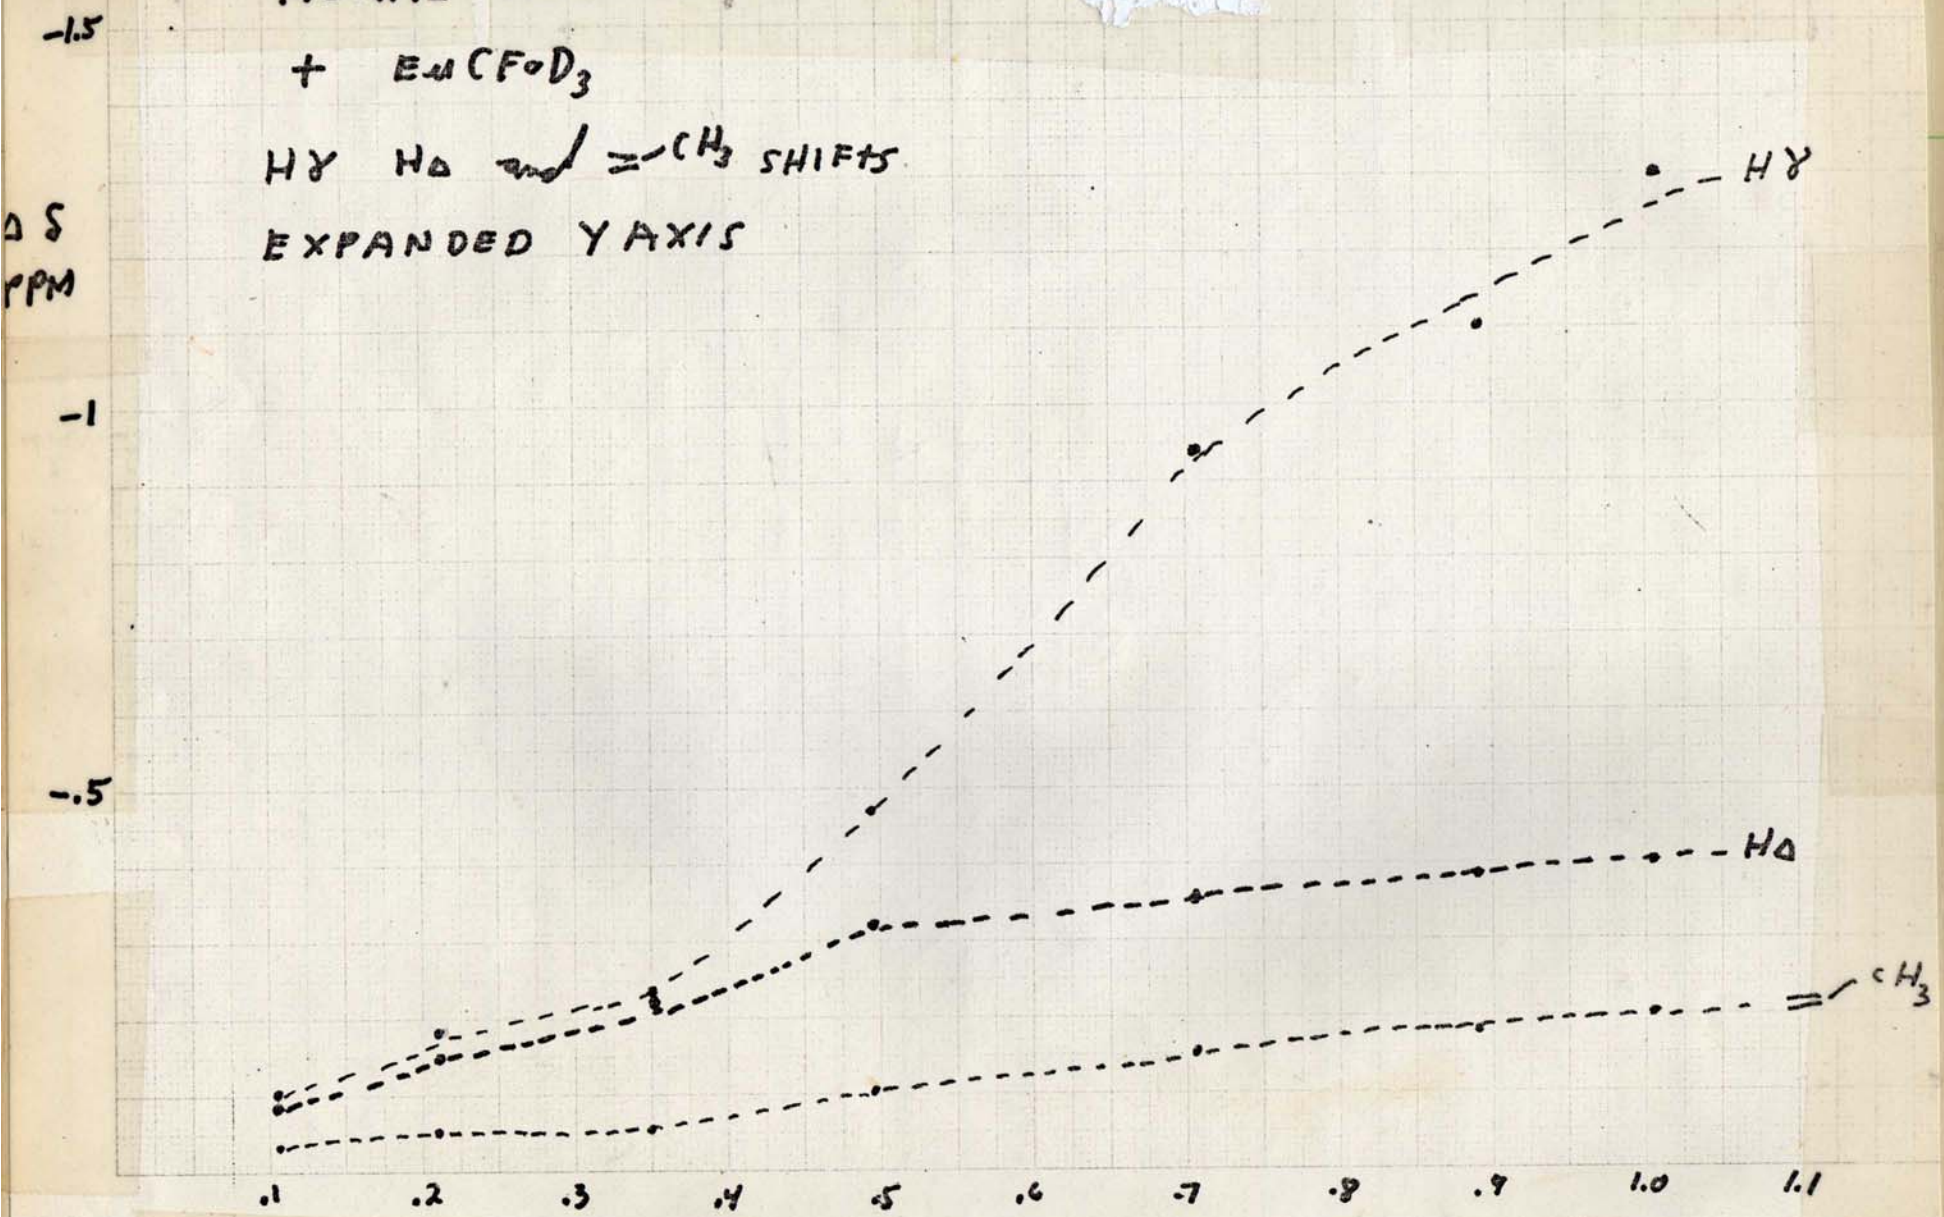 -1.5
+ EuCFoD3
Hγ HΔ and =-CH3 SHIFTS
EXPANDED Y AXIS
Δ δ
PPM
Hγ
-1
-.5
HΔ
=-CH3
.1 .2 .3 .4 .5 .6 .7 .8 .9 1.0 1.1